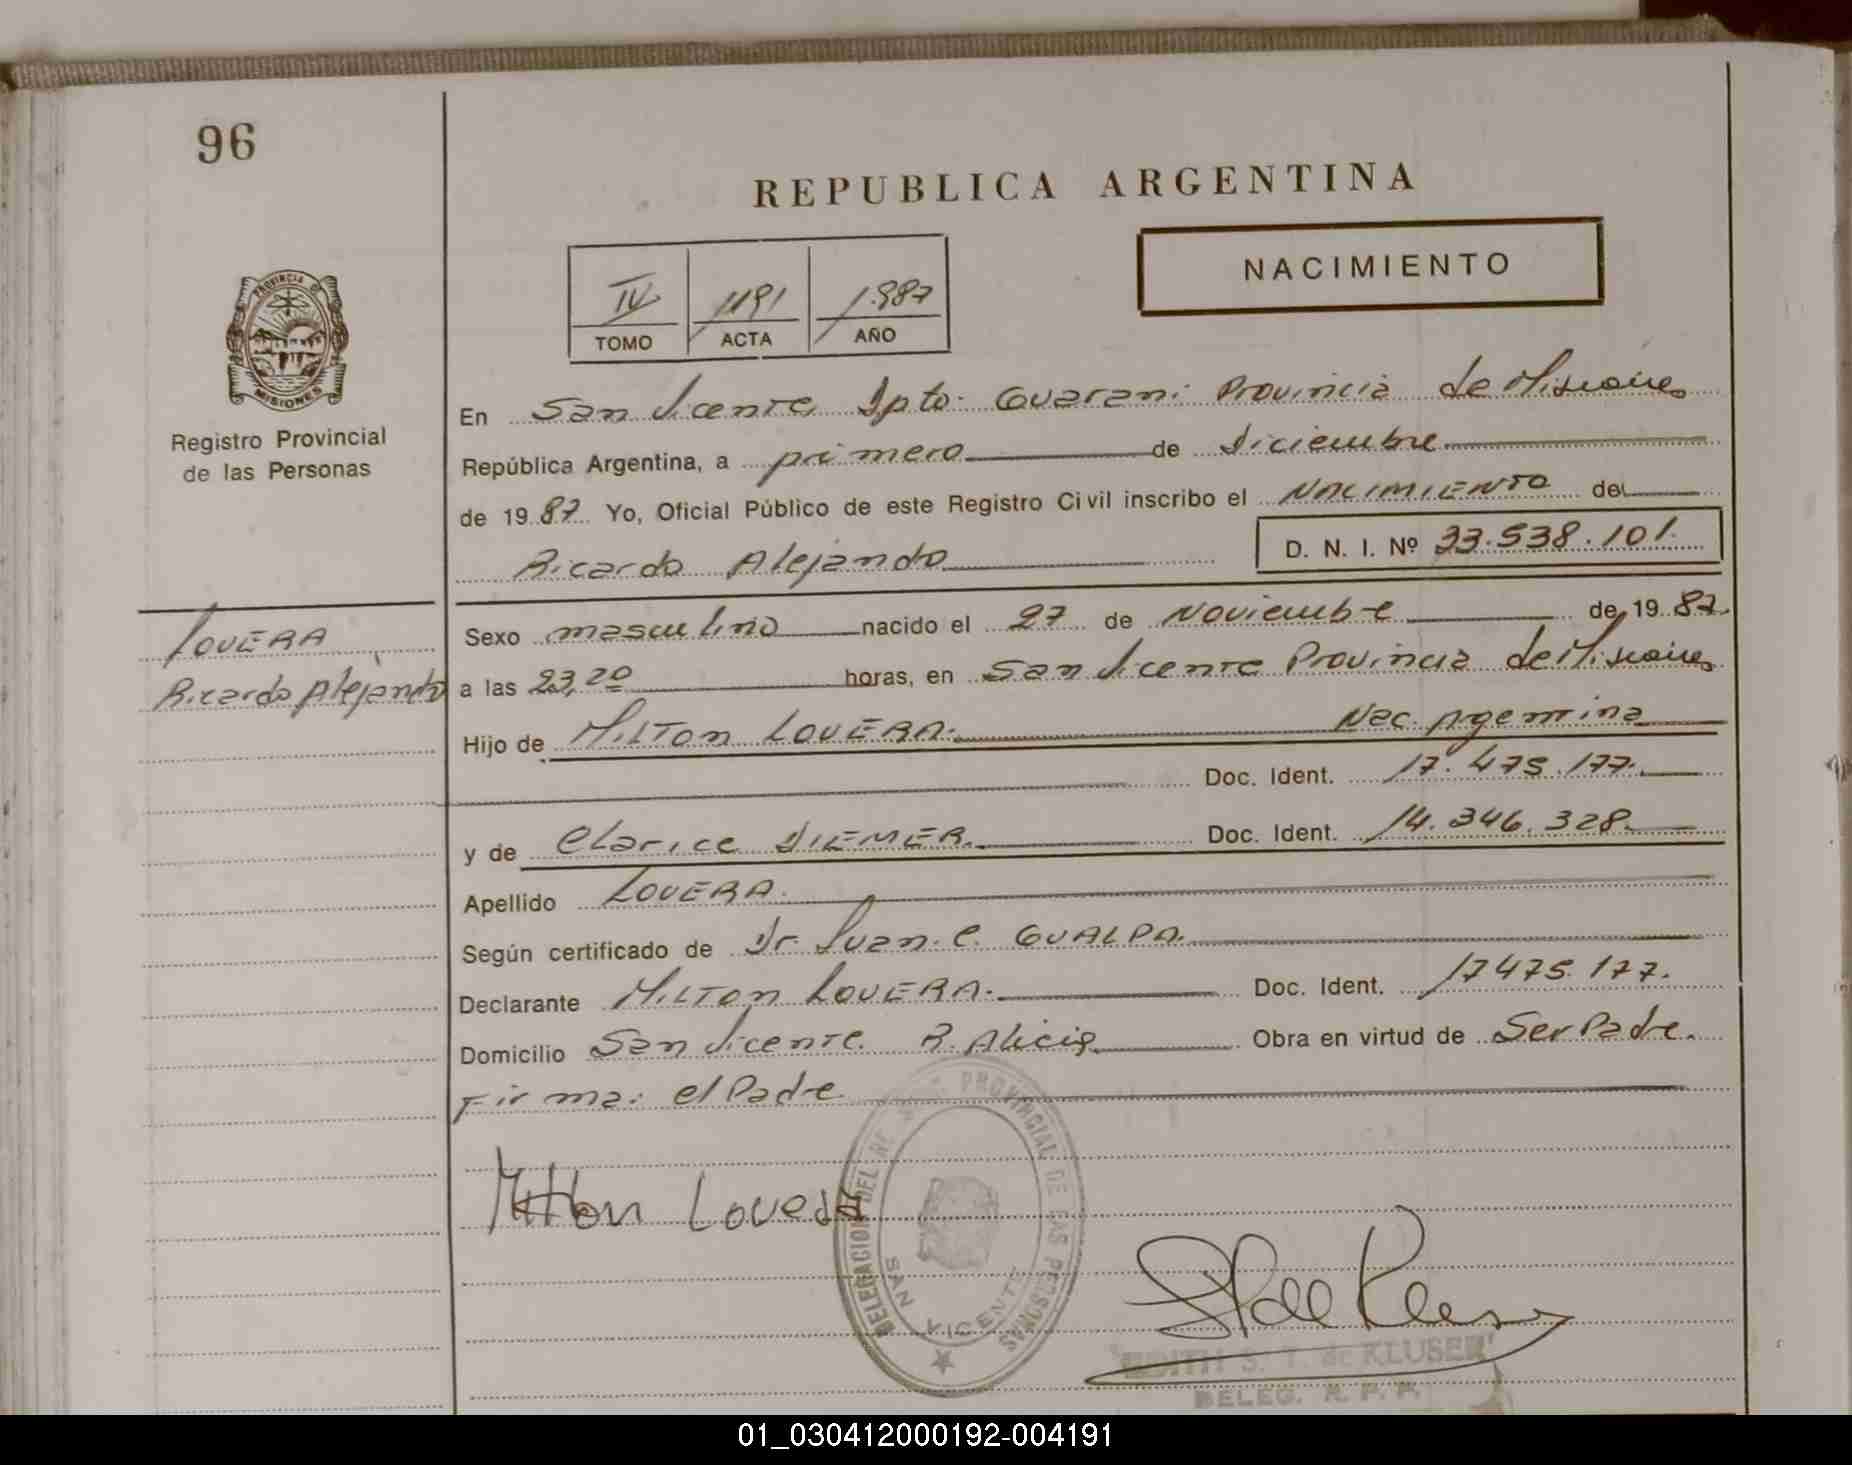 96
REPUBLICA ARGENTINA
NACIMIENTO
IV 1191 1.987
TOMO ACTA AÑO
PROVINCIA D MISIONES
Registro Provincial
de las Personas
En San Vicente Dpto. Guarani Provincia de Misiones
República Argentina, a primero de Diciembre
de 19 87 Yo, Oficial Público de este Registro Civil inscribo el NACIMIENTO de
Ricardo Alejando D. N. I. Nº 33.538.101.
LOVERA
Ricardo Alejando
Sexo masculino nacido el 27 de Noviembre de 19 87.
a las 23,20 horas, en San Vicente Provincia de Misiones
Hijo de MILTON LOVERA. Nac. Agentina
Doc. Ident. 17.475.177.
y de Clarice DIEMER. Doc. Ident. 14.346.328.
Apellido LOVERA.
Según certificado de Dr. Juan. C. GUALPA.
Declarante MILTON LOVERA. Doc. Ident. 17475.177.
Domicilio San Vicente. P. Alicia Obra en virtud de Ser Padre.
Firma: el Padre
Milton Lovera
DELEGACION DEL PROVINCIAL DE LAS PERSONAS
SAN VICENTE
EDITH S. T. de KLUSER
DELEG. R. P. P.
01_030412000192-004191